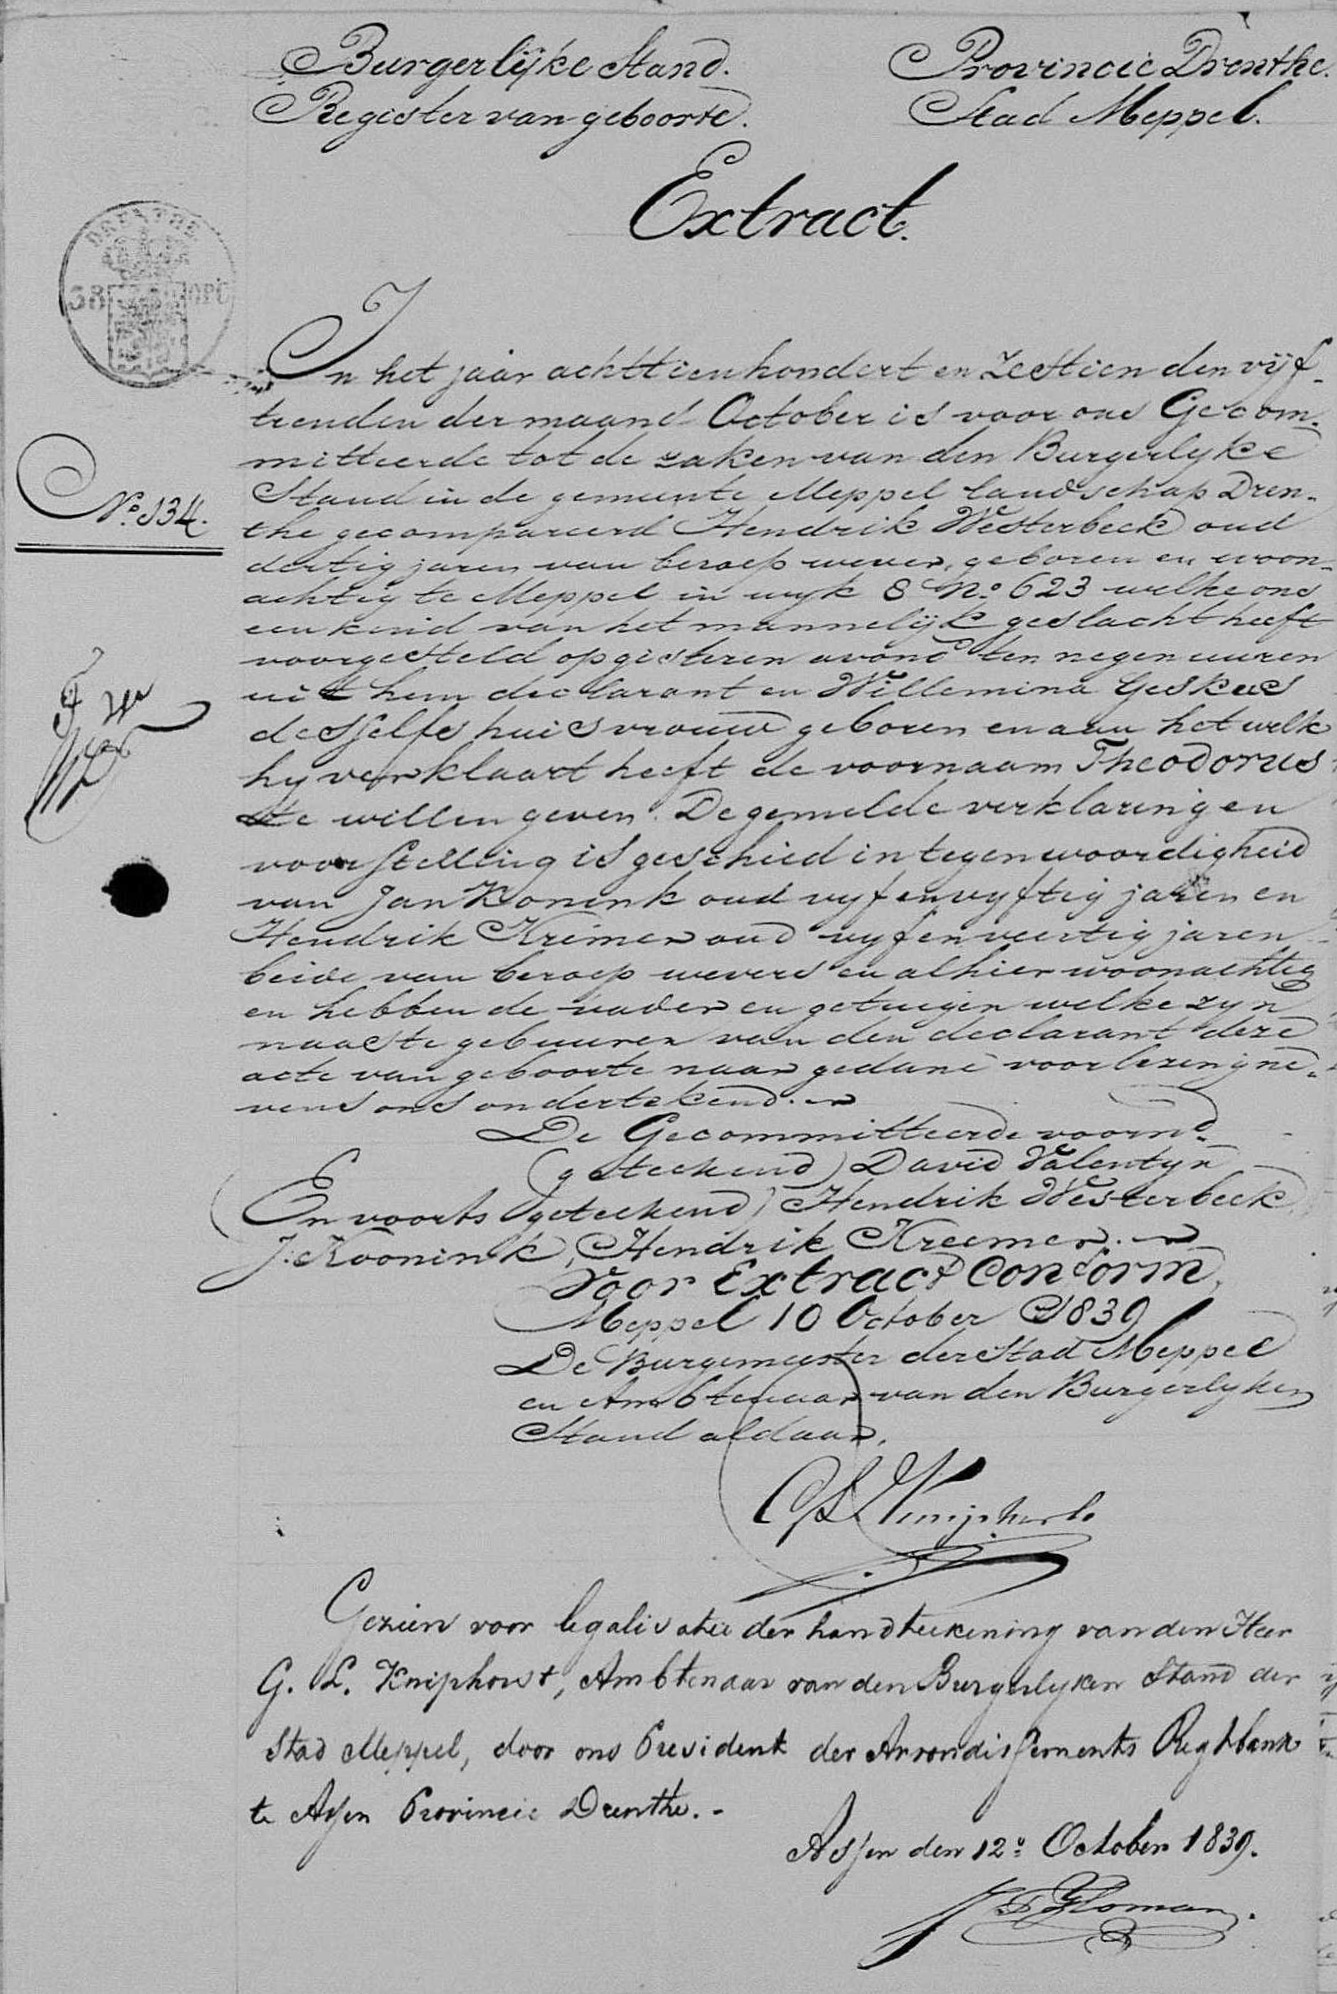 Burgerlijke Stand.
Provincie Drenthe.
Register van geboorte.
Stad Meppel.
Extract.
DRENTHE
38
OPC
In het jaar achttienhondert en zestien den vijf-
tienden der maand October is voor ons Gecom-
mitteerde tot de zaken van den Burgerlyke
Stand in de gemeente Meppel landschap Dren-
No. 134.
the gecompareerd Hendrik Westerbeek oud
dertig jaren van beroep wever, geboren en woon-
achtig te Meppel in wyk 8 No. 623 welke ons
een kind van het mannelijk geslacht heeft
voorgesteld op gisteren avond ten negen uuren
uit hem declarant en Willemina Geskes
desselfs huisvrouw geboren en aan het welk
hy verklaart heeft de voornaam Theodorus
te willen geven. De gemelde verklaring en
voorstelling is geschied in tegenwoordigheid
van Jan Konink oud vyf en vyftig jaren en
Hendrik Krimer oud vyf en veertig jaren
beide van beroep wevers en alhier woonachtig
en hebben de vader en getuigen welke zyn
naaste gebuuren van den declarant deze
acte van geboorte naar gedane voorlezing ne-
vens ons ondertekend.
De Gecommitteerde voornd.
(geteekend) David Valentyn
(En voorts geteekend) Hendrik Westerbeek,
J: Koonink, Hendrik Kreemer.
Voor Extract Conform,
Meppel 10 October 1839
De Burgemeester der Stad Meppel
en Ambtenaar van den Burgerlyken
Stand aldaar,
GL Kniphorst
Gezien voor legalisatie der handteekening van den Heer
G. L. Kniphorst, Ambtenaar van den Burgerlyken Stand der
Stad Meppel, door ons President der Arrondissements Regtbank
te Assen Provincie Drenthe.-
Assen den 12e October 1839.